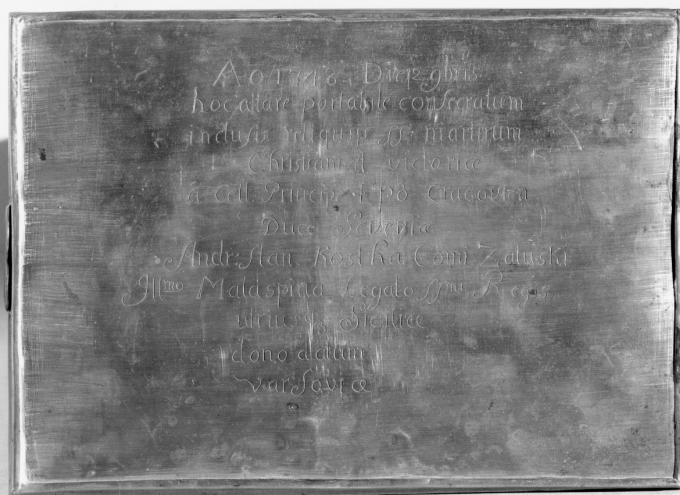 Aō 1746. Die 12 9bris
hoc altare portatile consecratum
inclusis reliquiis SS: martirum
Christiani & victoriæ
à Cell: Princip: Ep̄o Cracovien
Duce Severiæ
Andr: Stan: Kostka Comi: Zaluski
Illmo Malaspina Legato Regis
utriusq: Siciliæ
dono datum
Varsaviæ